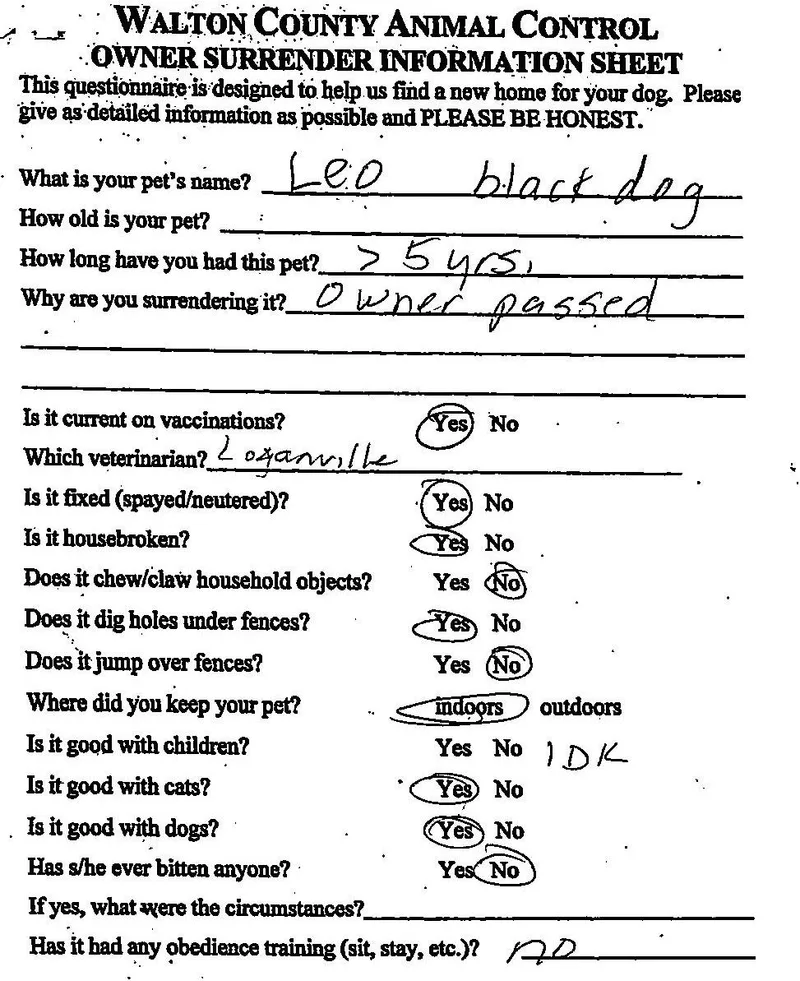 WALTON COUNTY ANIMAL CONTROL
OWNER SURRENDER INFORMATION SHEET
This questionnaire is designed to help us find a new home for your dog. Please
give as detailed information as possible and PLEASE BE HONEST.
What is your pet's name? Leo black dog
How old is your pet?
How long have you had this pet? > 5 yrs.
Why are you surrendering it? Owner passed
Is it current on vaccinations? Yes No
Which veterinarian? Loganville
Is it fixed (spayed/neutered)? Yes No
Is it housebroken? Yes No
Does it chew/claw household objects? Yes No
Does it dig holes under fences? Yes No
Does it jump over fences? Yes No
Where did you keep your pet? indoors outdoors
Is it good with children? Yes No IDK
Is it good with cats? Yes No
Is it good with dogs? Yes No
Has s/he ever bitten anyone? Yes No
If yes, what were the circumstances?
Has it had any obedience training (sit, stay, etc.)? no